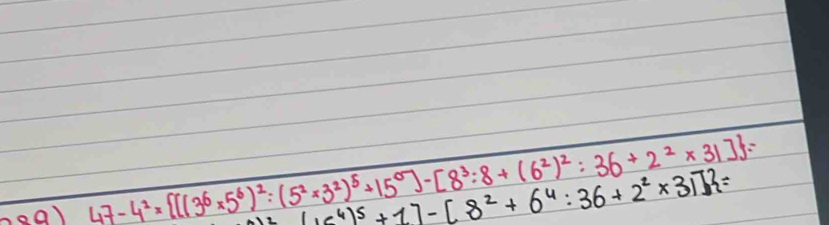 289) 47-4²×{[((3⁶×5⁶)²:(5²×3²)⁵+15⁰]-[8³:8+(6²)²:36+2²×31]}=
)⁵+1]-[8²+6⁴:36+2²×31]}=